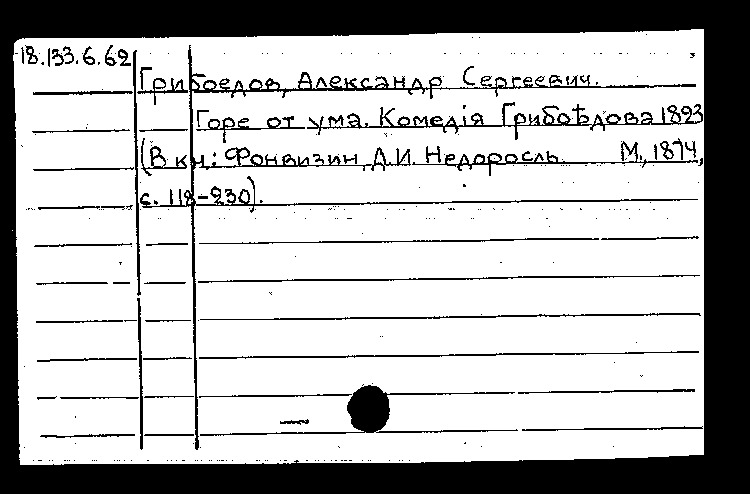 18.133.6.62
Грибоедов, Александр Сергеевич.
Горе от ума. Комедія Грибоѣдова 1823
(В кн.: Фонвизин, Д.И. Недоросль. М., 1874,
с. 118-230).